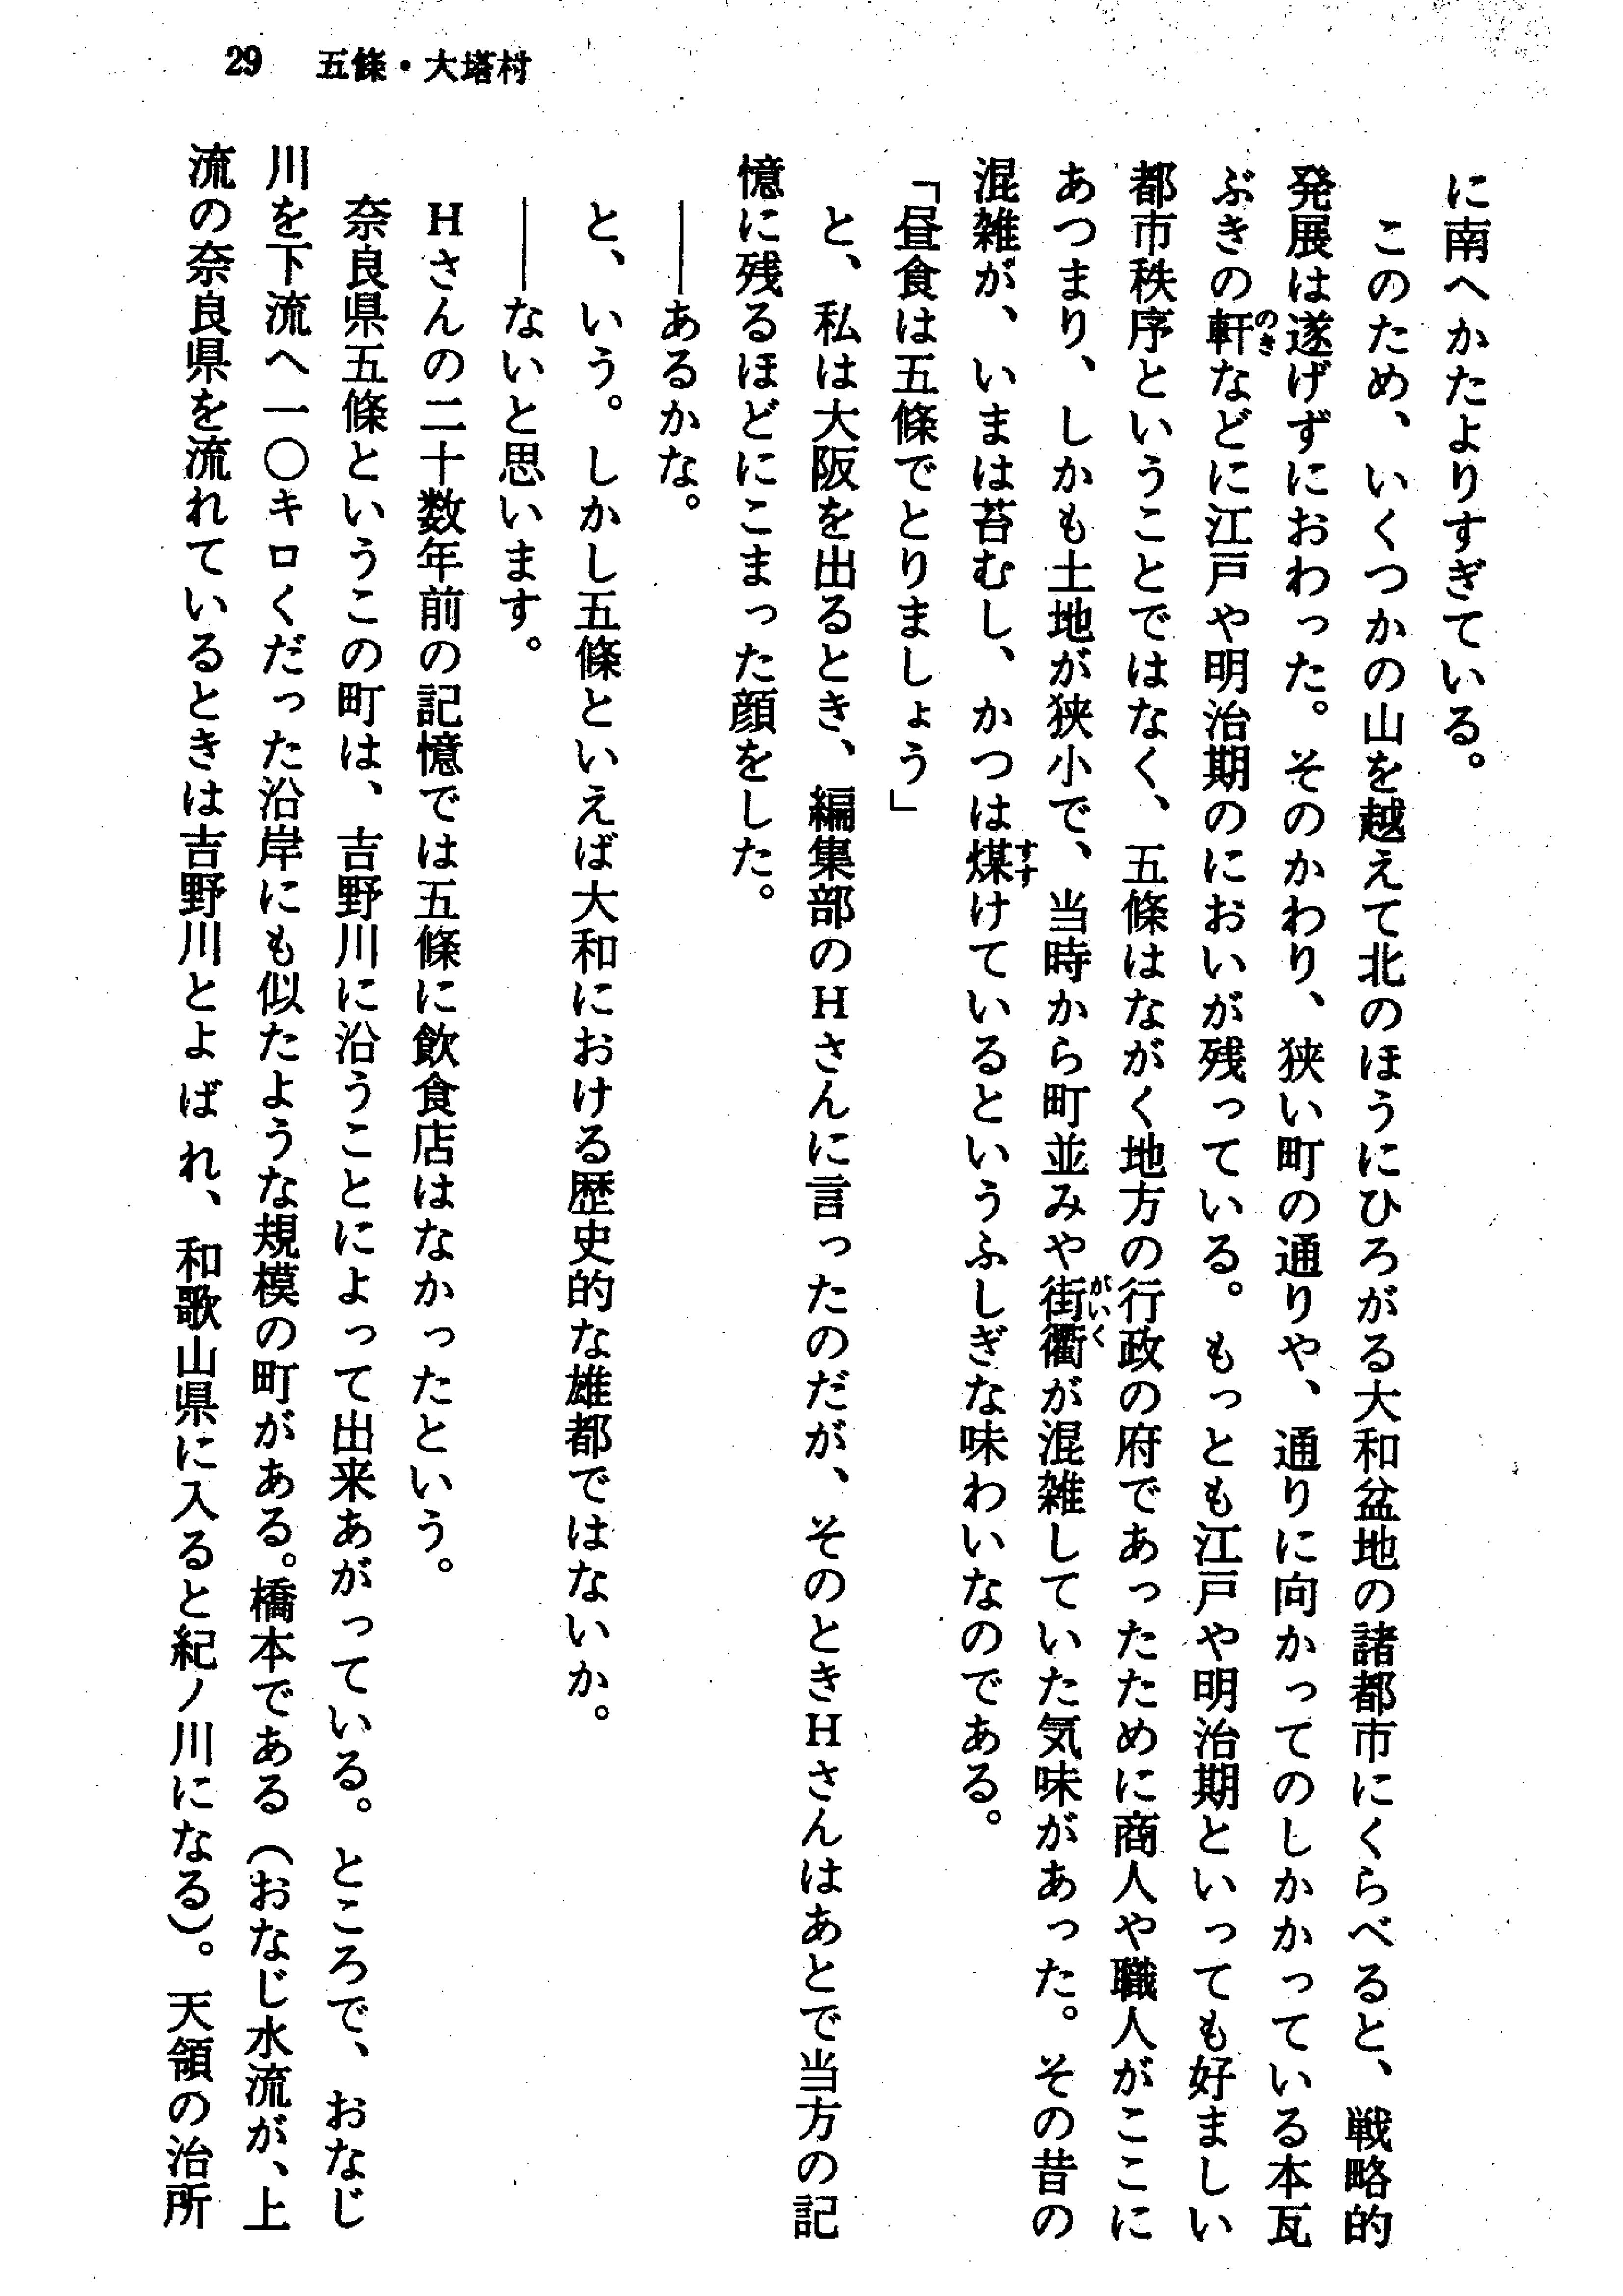 29　五條・大塔村
に南へかたよりすぎている。
　このため、いくつかの山を越えて北のほうにひろがる大和盆地の諸都市にくらべると、戦略的
発展は遂げずにおわった。そのかわり、狭い町の通りや、通りに向かってのしかかっている本瓦
ぶきの軒などに江戸や明治期のにおいが残っている。もっとも江戸や明治期といっても好ましい
都市秩序ということではなく、五條はながく地方の行政の府であったために商人や職人がここに
あつまり、しかも土地が狭小で、当時から町並みや街衢が混雑していた気味があった。その昔の
混雑が、いまは苔むし、かつは煤けているというふしぎな味わいなのである。
「昼食は五條でとりましょう」
　と、私は大阪を出るとき、編集部のHさんに言ったのだが、そのときHさんはあとで当方の記
憶に残るほどにこまった顔をした。
　――あるかな。
　と、いう。しかし五條といえば大和における歴史的な雄都ではないか。
　――ないと思います。
　Hさんの二十数年前の記憶では五條に飲食店はなかったという。
　奈良県五條というこの町は、吉野川に沿うことによって出来あがっている。ところで、おなじ
川を下流へ一〇キロくだった沿岸にも似たような規模の町がある。橋本である（おなじ水流が、上
流の奈良県を流れているときは吉野川とよばれ、和歌山県に入ると紀ノ川になる）。天領の治所